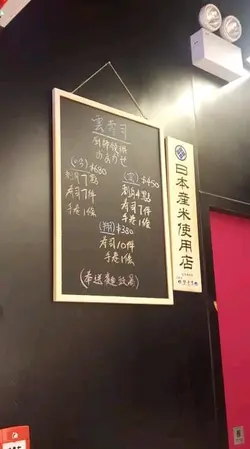 雲寿司
廚師發辦
おまかせ
(今) $680
刺身7點
寿司7件
手卷1條
(雲) $450
刺身4點
寿司7件
手卷1條
(翔) $380
寿司10件
手卷1條
(奉送麵豉湯)
日本産米使用店